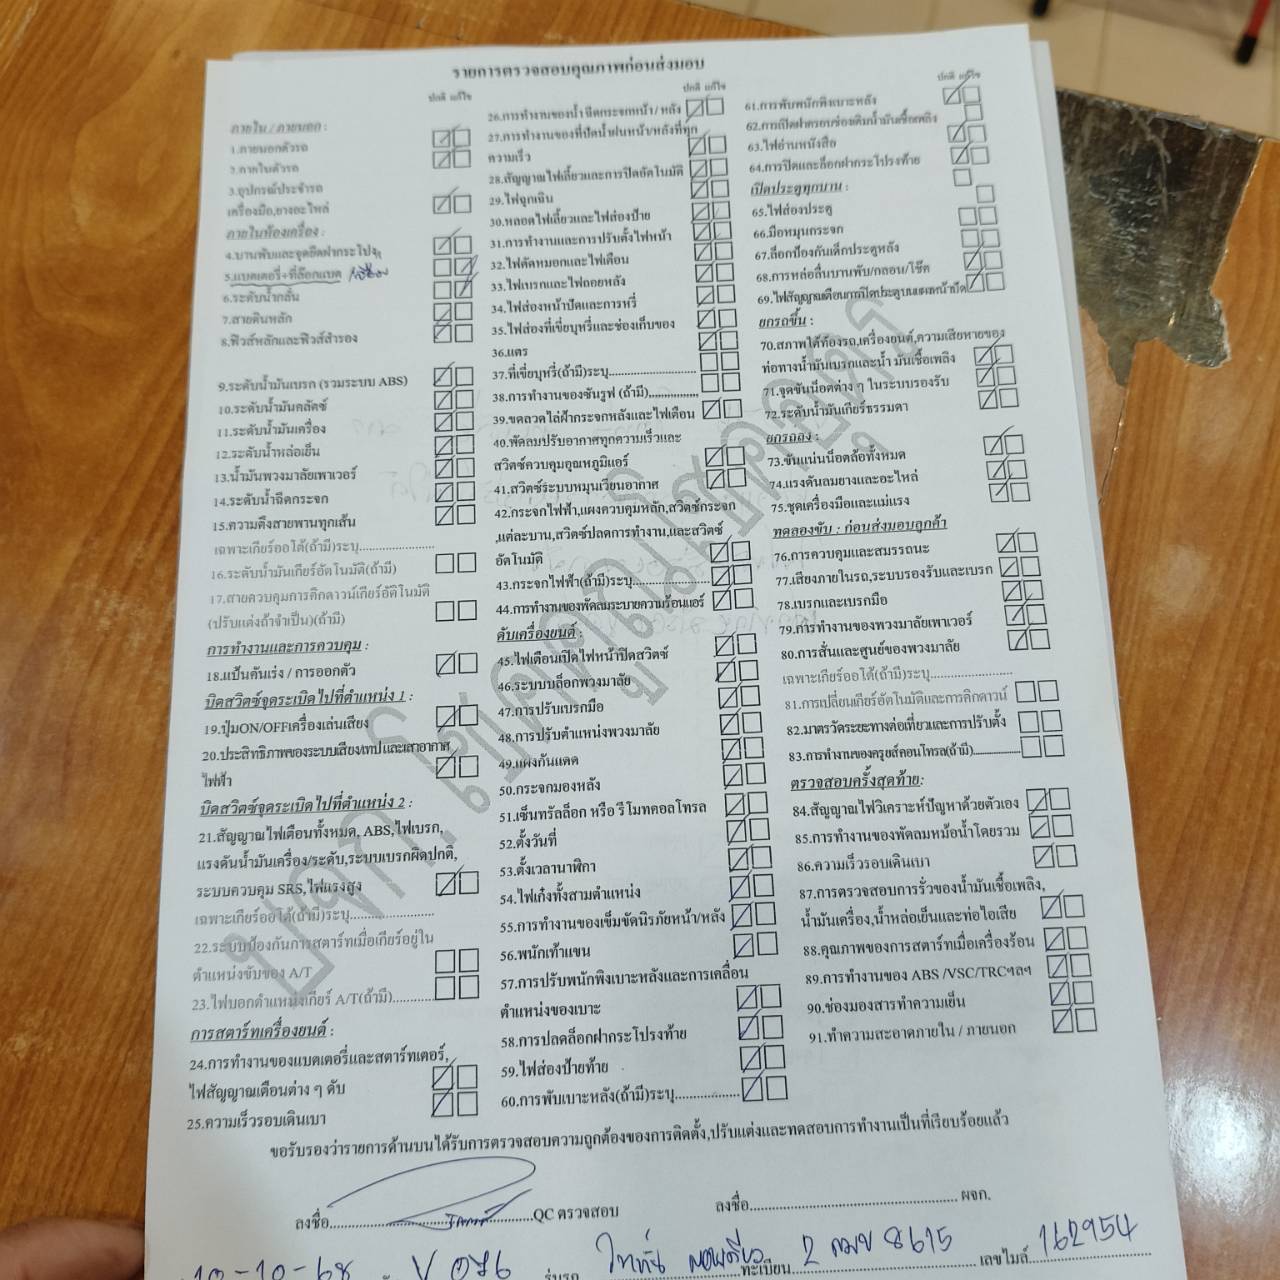 รายการตรวจสอบคุณภาพก่อนส่งมอบ
ปกติ แก้ไข
ภายใน / ภายนอก :
1.ภายนอกตัวรถ
2.ภายในตัวรถ
3.อุปกรณ์ประจำรถ
เครื่องมือ,ยางอะไหล่
ภายในห้องเครื่อง :
4.บานพับและจุดยึดฝากระโปรง
5.แบตเตอรี่+ที่ล๊อกแบต
6.ระดับน้ำกลั่น
7.สายดินหลัก
8.ฟิวส์หลักและฟิวส์สำรอง
9.ระดับน้ำมันเบรก (รวมระบบ ABS)
10.ระดับน้ำมันคลัตช์
11.ระดับน้ำมันเครื่อง
12.ระดับน้ำหล่อเย็น
13.น้ำมันพวงมาลัยเพาเวอร์
14.ระดับน้ำฉีดกระจก
15.ความตึงสายพานทุกเส้น
เฉพาะเกียร์ออโต้(ถ้ามี)ระบุ......................
16.ระดับน้ำมันเกียร์อัตโนมัติ(ถ้ามี)
17.สายควบคุมการคิกดาวน์เกียร์อัติโนมัติ
(ปรับแต่งถ้าจำเป็น)(ถ้ามี)
การทำงานและการควบคุม :
18.แป้นคันเร่ง / การออกตัว
บิดสวิตซ์จุดระเบิดไปที่ตำแหน่ง 1 :
19.ปุ่มON/OFFเครื่องเล่นเสียง
20.ประสิทธิภาพของระบบเสียง/เทป และเสาอากาศ
ไฟฟ้า
บิดสวิตซ์จุดระเบิดไปที่ตำแหน่ง 2 :
21.สัญญาณไฟเตือนทั้งหมด, ABS,ไฟเบรก,
แรงดันน้ำมันเครื่อง/ระดับ,ระบบเบรกผิดปกติ,
ระบบควบคุม SRS,ไฟแรงสูง
เฉพาะเกียร์ออโต้(ถ้ามี)ระบุ......................
22.ระบบป้องกันการสตาร์ทเมื่อเกียร์อยู่ใน
ตำแหน่งขับของ A/T
23.ไฟบอกตำแหน่งเกียร์ A/T(ถ้ามี)............
การสตาร์ทเครื่องยนต์ :
24.การทำงานของแบตเตอรี่และสตาร์ทเตอร์,
ไฟสัญญาณเตือนต่าง ๆ ดับ
25.ความเร็วรอบเดินเบา
ปกติ แก้ไข
26.การทำงานของน้ำ ฉีดกระจกหน้า / หลัง
27.การทำงานของที่ปัดน้ำฝนหน้า/หลังที่ทุก
ความเร็ว
28.สัญญาณไฟเลี้ยวและการปิดอัตโนมัติ
29.ไฟฉุกเฉิน
30.หลอดไฟเลี้ยวและไฟส่องป้าย
31.การทำงานและการปรับตั้งไฟหน้า
32.ไฟตัดหมอกและไฟเตือน
33.ไฟเบรกและไฟถอยหลัง
34.ไฟส่องหน้าปัดและการหรี่
35.ไฟส่องที่เขี่ยบุหรี่และช่องเก็บของ
36.แตร
37.ที่เขี่ยบุหรี่(ถ้ามี)ระบุ.........................
38.การทำงานของซันรูฟ (ถ้ามี)...............
39.ขดลวดไล่ฝ้ากระจกหลังและไฟเตือน
40.พัดลมปรับอากาศทุกความเร็วและ
สวิตซ์ควบคุมอุณหภูมิแอร์
41.สวิตซ์ระบบหมุนเวียนอากาศ
42.กระจกไฟฟ้า,แผงควบคุมหลัก,สวิตซ์กระจก
,แต่ละบาน,สวิตซ์ปลดการทำงาน,และสวิตซ์
อัตโนมัติ
43.กระจกไฟฟ้า(ถ้ามี)ระบุ......................
44.การทำงานของพัดลมระบายความร้อนแอร์
ดับเครื่องยนต์ :
45.ไฟเตือนเปิดไฟหน้าปิดสวิตซ์
46.ระบบบล็อกพวงมาลัย
47.การปรับเบรกมือ
48.การปรับตำแหน่งพวงมาลัย
49.แผงกันแดด
50.กระจกมองหลัง
51.เซ็นทรัลล็อก หรือ รีโมทคอลโทรล
52.ตั้งวันที่
53.ตั้งเวลานาฬิกา
54.ไฟเก๋งทั้งสามตำแหน่ง
55.การทำงานของเข็มขัดนิรภัยหน้า/หลัง
56.พนักเท้าแขน
57.การปรับพนักพิงเบาะหลังและการเคลื่อน
ตำแหน่งของเบาะ
58.การปลดล็อกฝากระโปรงท้าย
59.ไฟส่องป้ายท้าย
60.การพับเบาะหลัง(ถ้ามี)ระบุ..................
ปกติ แก้ไข
61.การพับพนักพิงเบาะหลัง
62.การเปิดฝาครอบช่องเติมน้ำมันเชื้อเพลิง
63.ไฟอ่านหนังสือ
64.การปิดและล็อกฝากระโปรงท้าย
เปิดประตูทุกบาน :
65.ไฟส่องประตู
66.มือหมุนกระจก
67.ล็อกป้องกันเด็กประตูหลัง
68.การหล่อลื่นบานพับ/กลอน/โช๊ค
69.ไฟสัญญาณเตือนการปิดประตูบนแผงหน้าปัด
ยกรถขึ้น :
70.สภาพใต้ท้องรถ,เครื่องยนต์,ความเสียหายของ
ท่อทางน้ำมันเบรกและน้ำ มันเชื้อเพลิง
71.จุดขันน็อตต่าง ๆ ในระบบรองรับ
72.ระดับน้ำมันเกียร์ธรรมดา
ยกรถลง :
73.ขันแน่นน็อตล้อทั้งหมด
74.แรงดันลมยางและอะไหล่
75.ชุดเครื่องมือและแม่แรง
ทดลองขับ : ก่อนส่งมอบลูกค้า
76.การควบคุมและสมรรถนะ
77.เสียงภายในรถ,ระบบรองรับและเบรก
78.เบรกและเบรกมือ
79.การทำงานของพวงมาลัยเพาเวอร์
80.การสั่นและศูนย์ของพวงมาลัย
เฉพาะเกียร์ออโต้(ถ้ามี)ระบุ......................
81.การเปลี่ยนเกียร์อัตโนมัติและการคิกดาวน์
82.มาตรวัดระยะทางต่อเที่ยวและการปรับตั้ง
83.การทำงานของครุยส์คอนโทรล(ถ้ามี)............
ตรวจสอบครั้งสุดท้าย:
84.สัญญาณไฟวิเคราะห์ปัญหาด้วยตัวเอง
85.การทำงานของพัดลมหม้อน้ำโดยรวม
86.ความเร็วรอบเดินเบา
87.การตรวจสอบการรั่วของน้ำมันเชื้อเพลิง,
น้ำมันเครื่อง,น้ำหล่อเย็นและท่อไอเสีย
88.คุณภาพของการสตาร์ทเมื่อเครื่องร้อน
89.การทำงานของ ABS /VSC/TRCฯลฯ
90.ช่องมองสารทำความเย็น
91.ทำความสะอาดภายใน / ภายนอก
บจก.โชคคูณโชคยุทธ
ขอรับรองว่ารายการด้านบนได้รับการตรวจสอบความถูกต้องของการติดตั้ง,ปรับแต่งและทดสอบการทำงานเป็นที่เรียบร้อยแล้ว
ลงชื่อ..................QC ตรวจสอบ ลงชื่อ.................. ผจก.
10-10-68 V 076 รุ่นรถ ไททั่น ตอนเดียว ทะเบียน 2 ฒฆ 8615 เลขไมล์ 162954